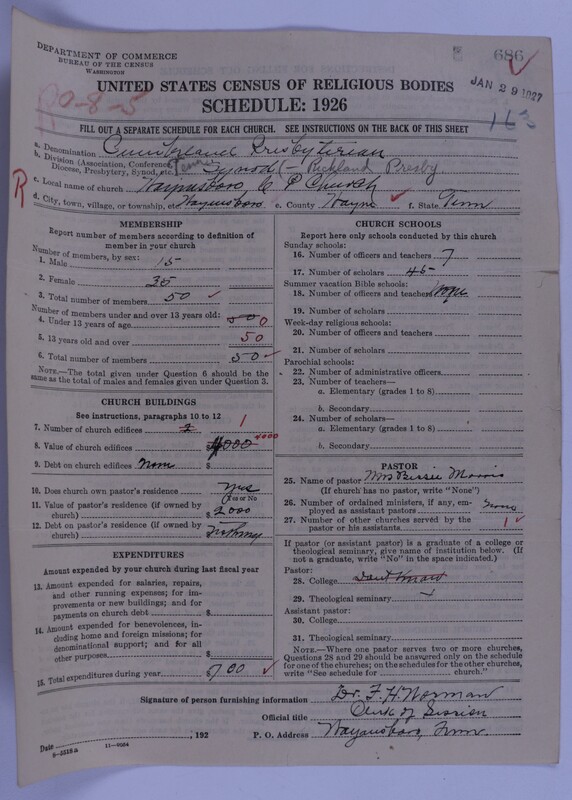 DEPARTMENT OF COMMERCE
BUREAU OF THE CENSUS
WASHINGTON
686
JAN 29 1927
UNITED STATES CENSUS OF RELIGIOUS BODIES
SCHEDULE: 1926
R 0-8-5
163
FILL OUT A SEPARATE SCHEDULE FOR EACH CHURCH. SEE INSTRUCTIONS ON THE BACK OF THIS SHEET
a. Denomination Cumberland Presbyterian
b. Division (Association, Conference, Diocese, Presbytery, Synod, etc.) Synod - Richland Presby
R
c. Local name of church Waynesboro C P Church
d. City, town, village, or township, etc. Waynesboro e. County Wayne f. State Tenn
MEMBERSHIP
Report number of members according to definition of
member in your church
Number of members, by sex:
1. Male 15
2. Female 35
3. Total number of members 50
Number of members under and over 13 years old:
4. Under 13 years of age 50 0
5. 13 years old and over 50
6. Total number of members 50
NOTE.—The total given under Question 6 should be the
same as the total of males and females given under Question 3.
CHURCH BUILDINGS
See instructions, paragraphs 10 to 12
7. Number of church edifices 2 1
8. Value of church edifices $ 4000 4000
9. Debt on church edifices None $
10. Does church own pastor's residence Yes
(Yes or No)
11. Value of pastor's residence (if owned by
church) $ 2000
12. Debt on pastor's residence (if owned by
church)
EXPENDITURES
Amount expended by your church during last fiscal year
13. Amount expended for salaries, repairs,
and other running expenses; for im-
provements or new buildings; and for
payments on church debt $
14. Amount expended for benevolences, in-
cluding home and foreign missions; for
denominational support; and for all
other purposes $
15. Total expenditures during year $ 700
CHURCH SCHOOLS
Report here only schools conducted by this church
Sunday schools:
16. Number of officers and teachers 7
17. Number of scholars 45
Summer vacation Bible schools:
18. Number of officers and teachers None
19. Number of scholars
Week-day religious schools:
20. Number of officers and teachers
21. Number of scholars
Parochial schools:
22. Number of administrative officers
23. Number of teachers—
a. Elementary (grades 1 to 8)
b. Secondary
24. Number of scholars—
a. Elementary (grades 1 to 8)
b. Secondary
PASTOR
25. Name of pastor Mrs Bessie Morris
(If church has no pastor, write "None")
26. Number of ordained ministers, if any, em-
ployed as assistant pastors None
27. Number of other churches served by the
pastor or his assistants 1
If pastor (or assistant pastor) is a graduate of a college or
theological seminary, give name of institution below. (If
not a graduate, write "No" in the space indicated.)
Pastor:
28. College Dont Know
29. Theological seminary
Assistant pastor:
30. College
31. Theological seminary
NOTE.—Where one pastor serves two or more churches,
Questions 28 and 29 should be answered only on the schedule
for one of the churches; on the schedules for the other churches,
write "See schedule for church."
Signature of person furnishing information Dr. F. H. Norman
Official title Clerk of Session
Date , 192 P. O. Address Waynesboro, Tenn
8-5518a 11-9304